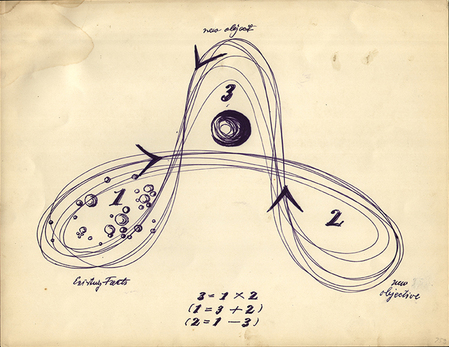 new object
3
1
2
Existing Facts
new
objective
3 = 1 × 2
(1 = 3 + 2)
(2 = 1 – 3)